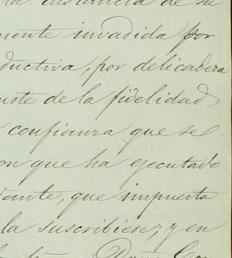 la instancia de su
mente invadida por
ductiva, por delicadera
uste de la fidelidad
confianza que se
on que ha ejecutado
dante, que impuesta
la suscribiese; y en